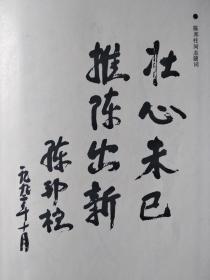 陈邦柱同志题词
壮心未已
推陈出新
陈邦柱
一九九二年十月